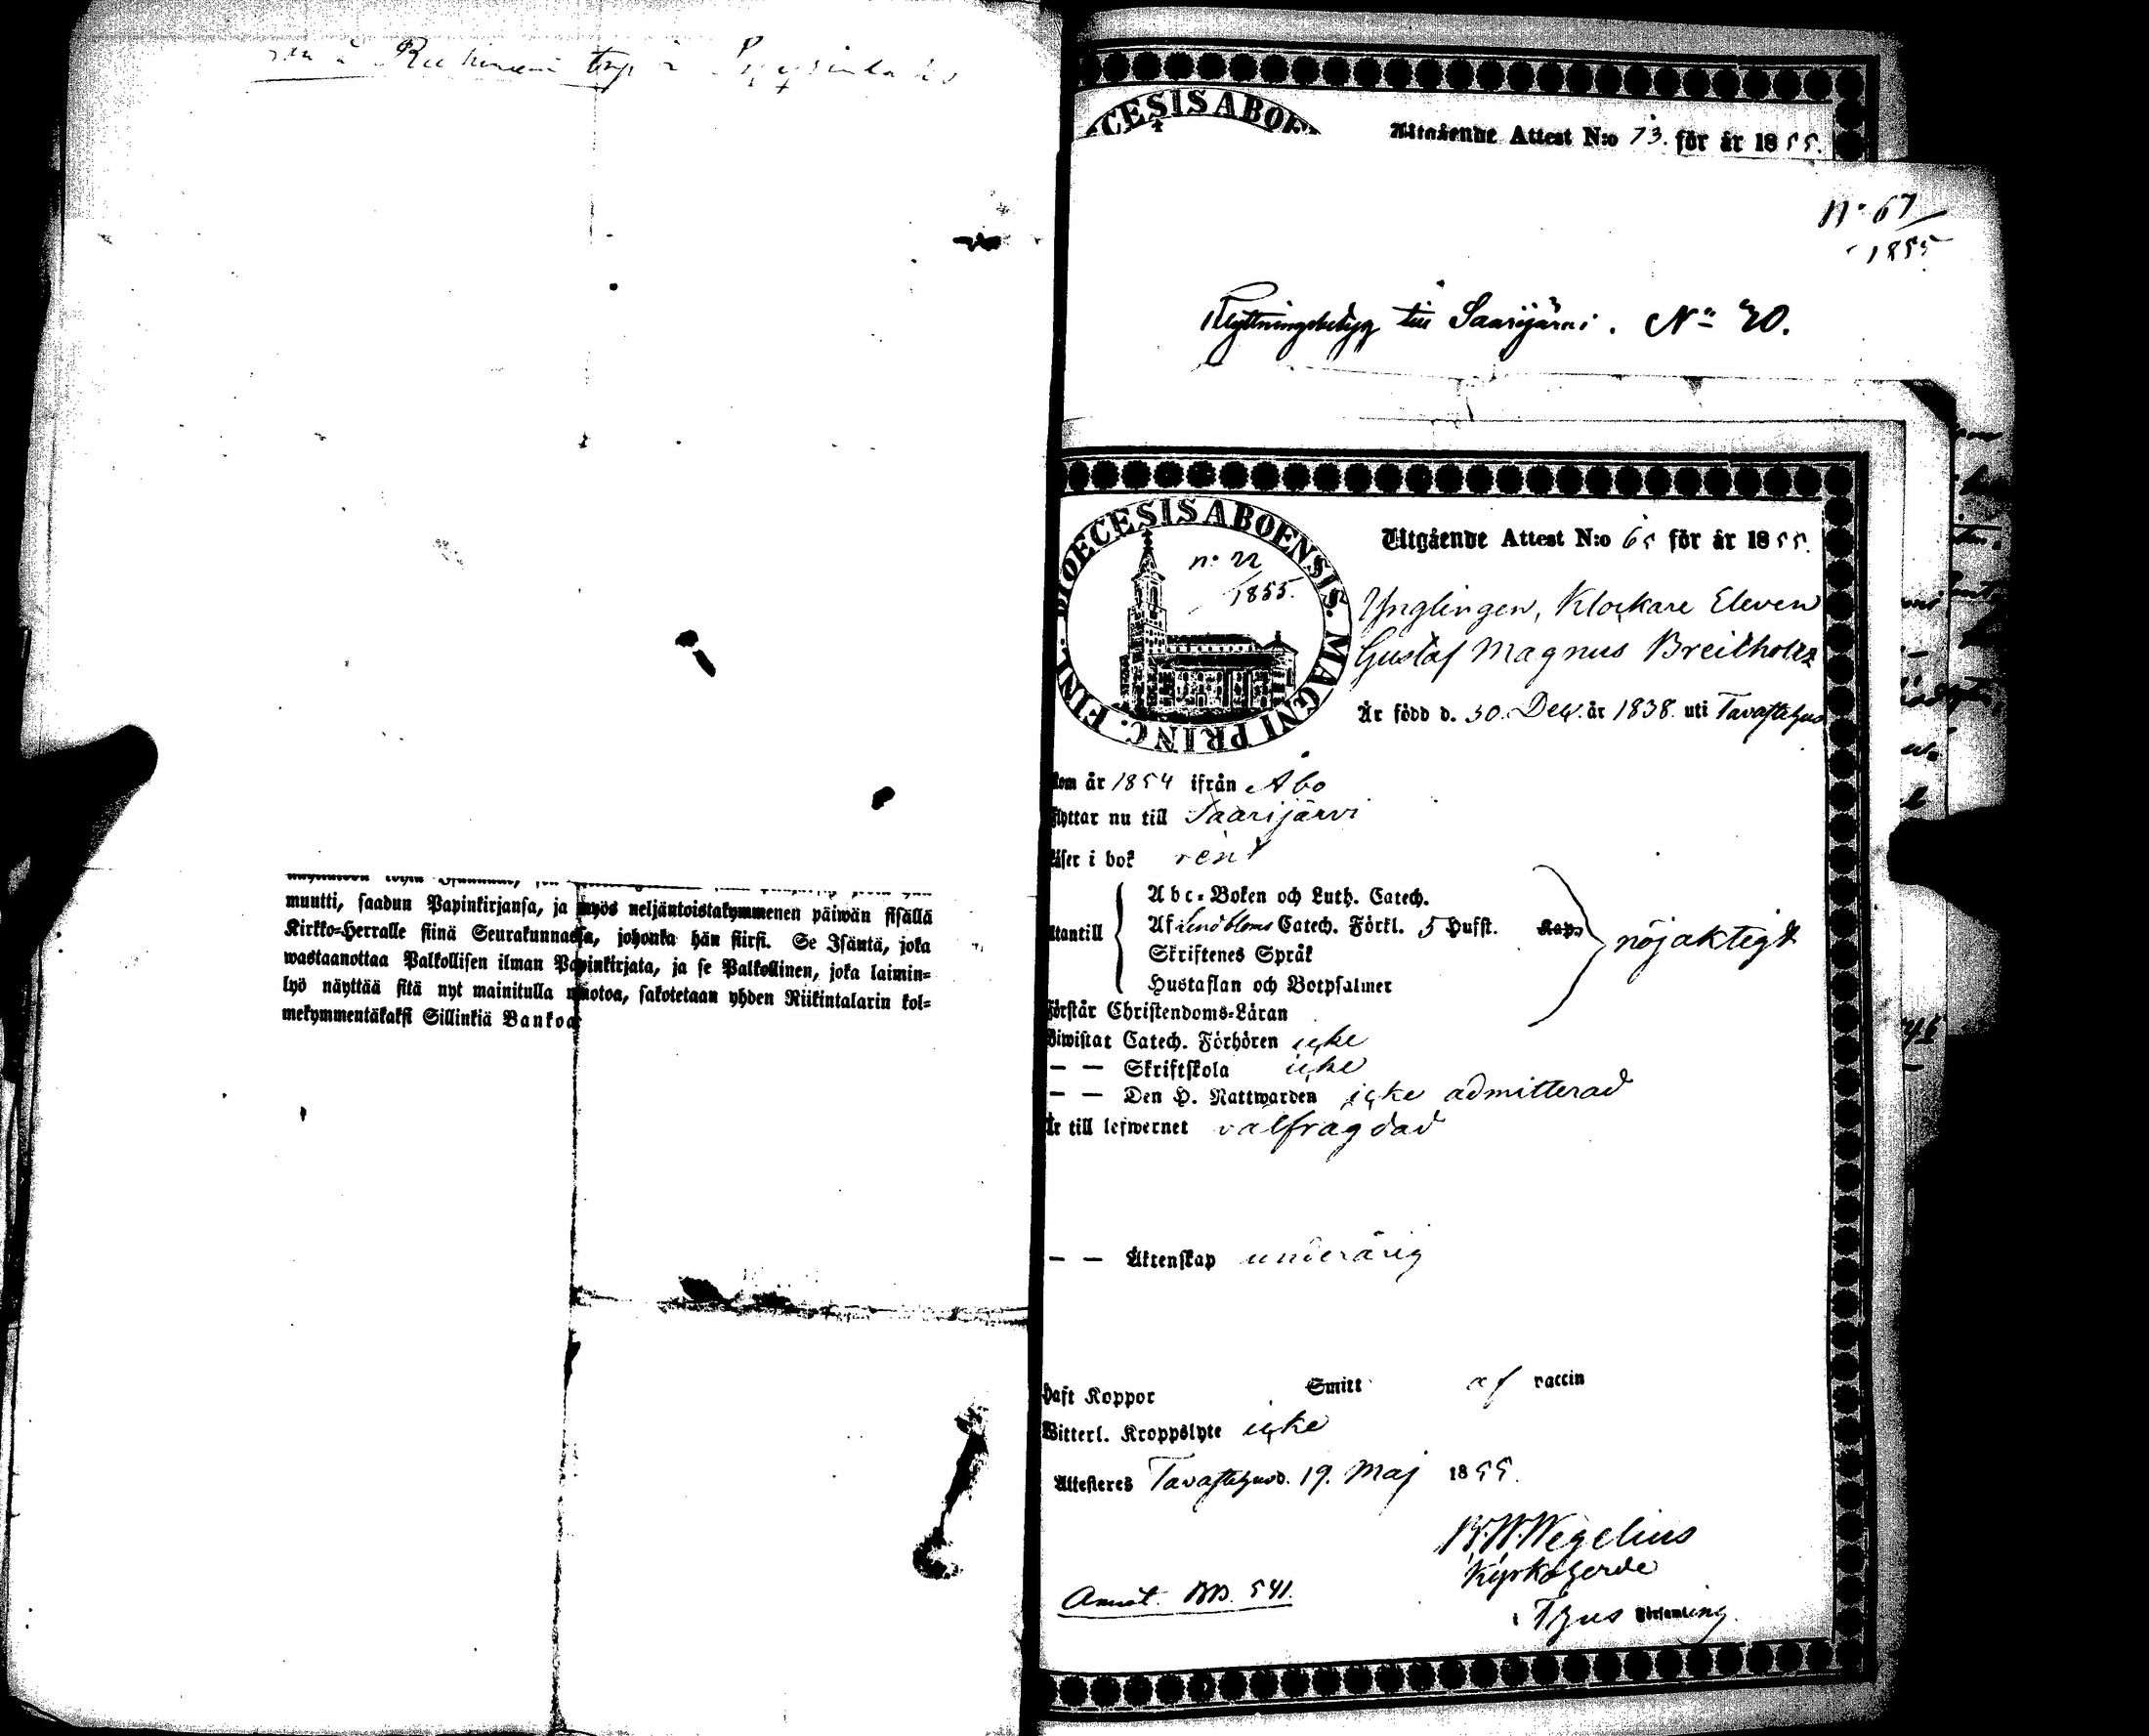 muutti, saadun Papinkirjansa, ja myös neljäntoistakymmenen päiwän sisällä
Kirkko-Herralle siinä Seurakunnassa, johonka hän siirsi. Se Isäntä, joka
wastaanottaa Palkollisen ilman Papinkirjata, ja se Palkollinen, joka laimin-
lyö näyttää sitä nyt mainitulla muotoa, sakotetaan yhden Riikintalarin kol-
mekymmentäkaksi Sillinkiä Bankoa
CESIS ABOE
Utgående Attest N:o 73. för år 1855.
N:o 67
1855
Flyttningsbetyg till Saarijärvi. No 20.
DIOECESIS ABOENSIS. MAGNI PRINC. FINL.
n:o 22
1855.
Utgående Attest N:o 65 för år 1855.
Ynglingen, Klockare Eleven
Gustaf Magnus Breitholtz
Är född d. 30. Dec. år 1838. uti Tavastehus
kom år 1854 ifrån Åbo
flyttar nu till Saarijärvi
läser i bok rent
utantill
Abc-Boken och Luth. Catech.
Af Lindbloms Catech. Förkl. 5 Hufst. Kap.
Skriftenes Språk
Hustaflan och Botpsalmer
nöjaktigt
Förstår Christendoms-Läran
Biwistat Catech. Förhören icke
— — Skriftskola icke
— — Den H. Nattwarden icke admitterad
Är till lefwernet välfrägdad
— — Äktenskap underårig
Haft Koppor Smitt af vaccin
Witterl. Kroppslyte icke
Attesteras Tavastehus d. 19. Maj 1855.
Wegelius
Kyrkoherde
i T:hus Församling.
Annot. BB. 541.